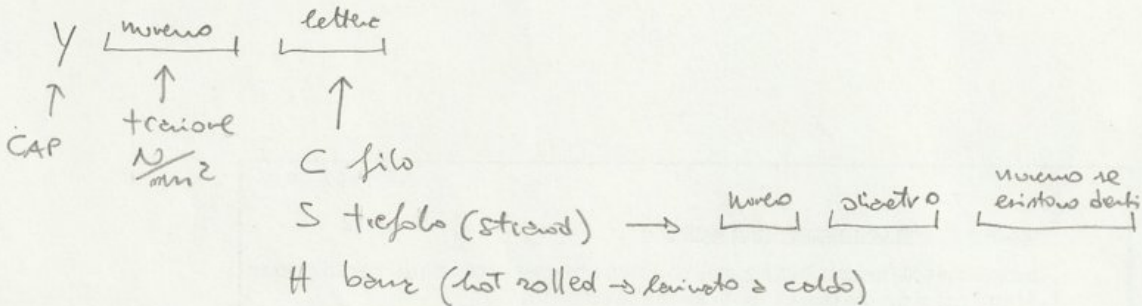 Y numero lettere
CAP trazione
N/mm²
C filo
S trefolo (strand) → numero diametro numero se
esistono denti
H barre (hot rolled → laminato a caldo)